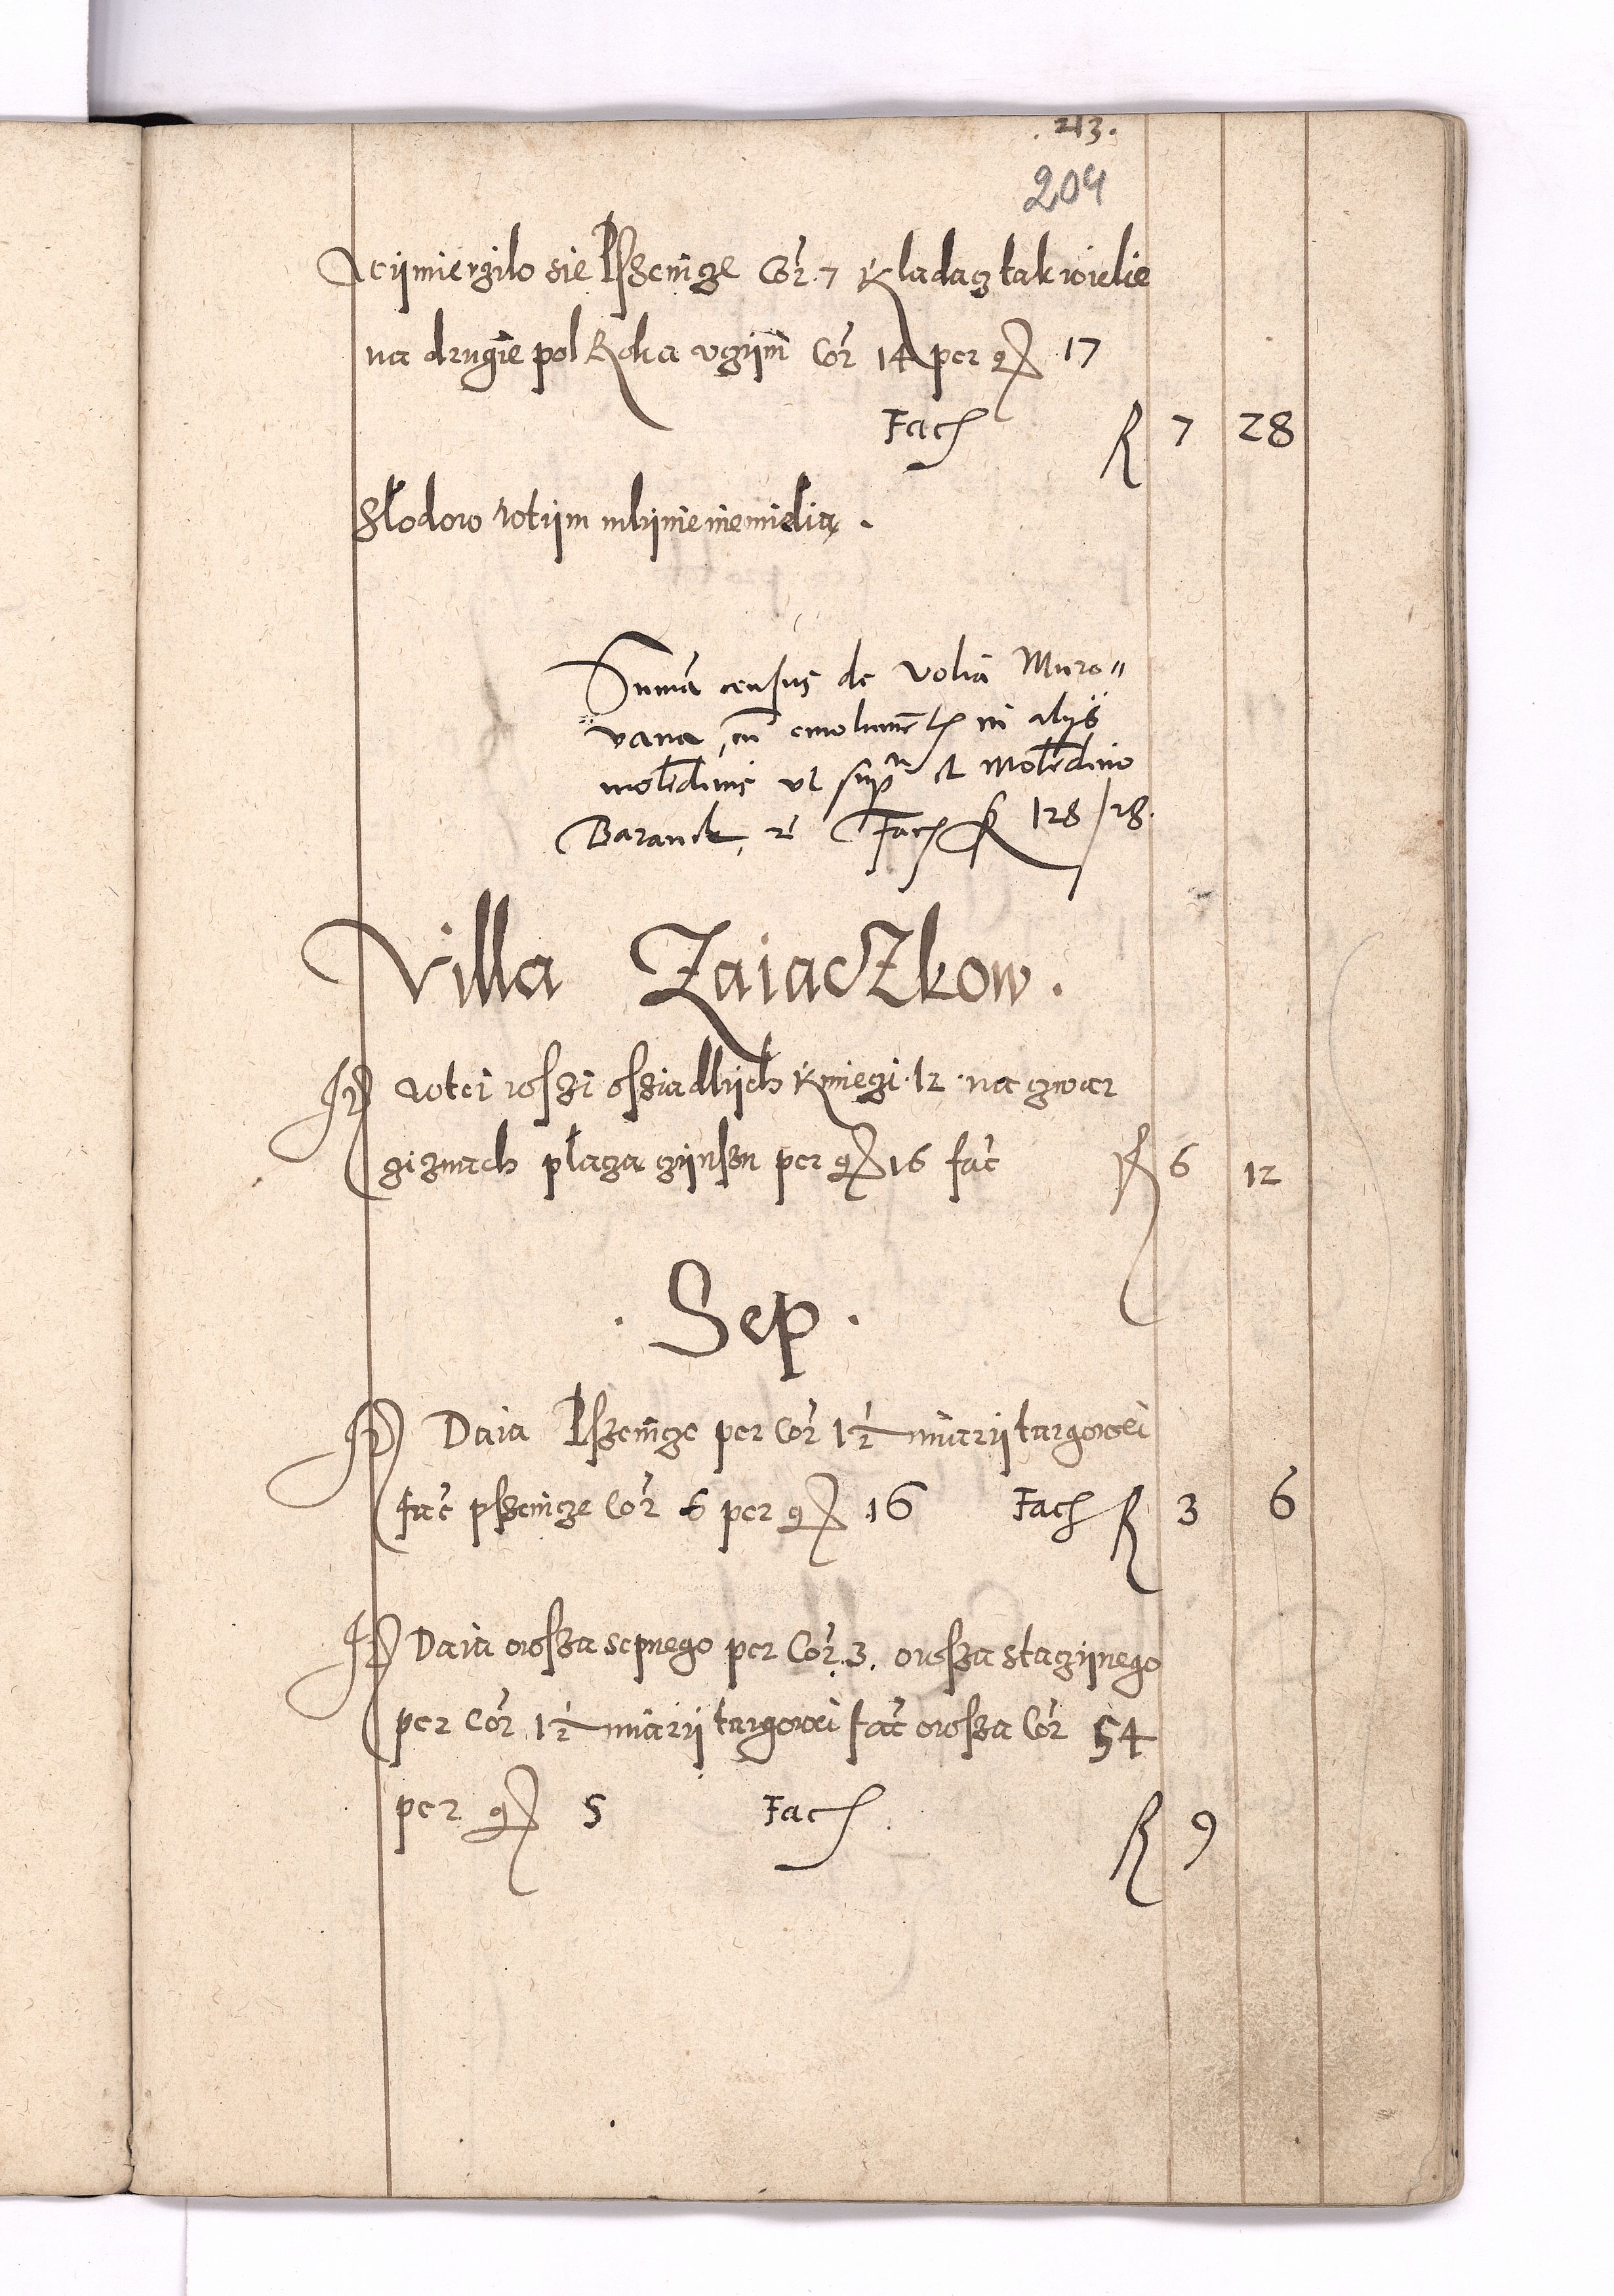 .213.
204
Wijmierzilo sie Pszenicze Cor. 7 Kladacz tak wielie
na drugie pol Roka vczijni Cor 14 per gr 17
Fac R 7 28
Slodow wtijm mlijnie niemielią .
Suma census de Volia Muro"
vana, cu emolumet in alijs
molēdinis vt supra et molēdino
Baranek, Fac R 128/28.
Villa ZaiacZkow .
It wtei wszi osziadlijch kmiezi .12. na czwar
cziznach placza czijnszu per gr 16 fac R 6 12
. Sep .
It Daia Pszenicze per Cor 1½ miarij targowei
fac pszenicze Cor 6 per gr 16 Fac R 3 6
It Daia owsza sepnego per Cor. 3. owsza staczijnego
per Cor 1½ miarij targowei fac owsza Cor 54
per gr 5 Fac R 9